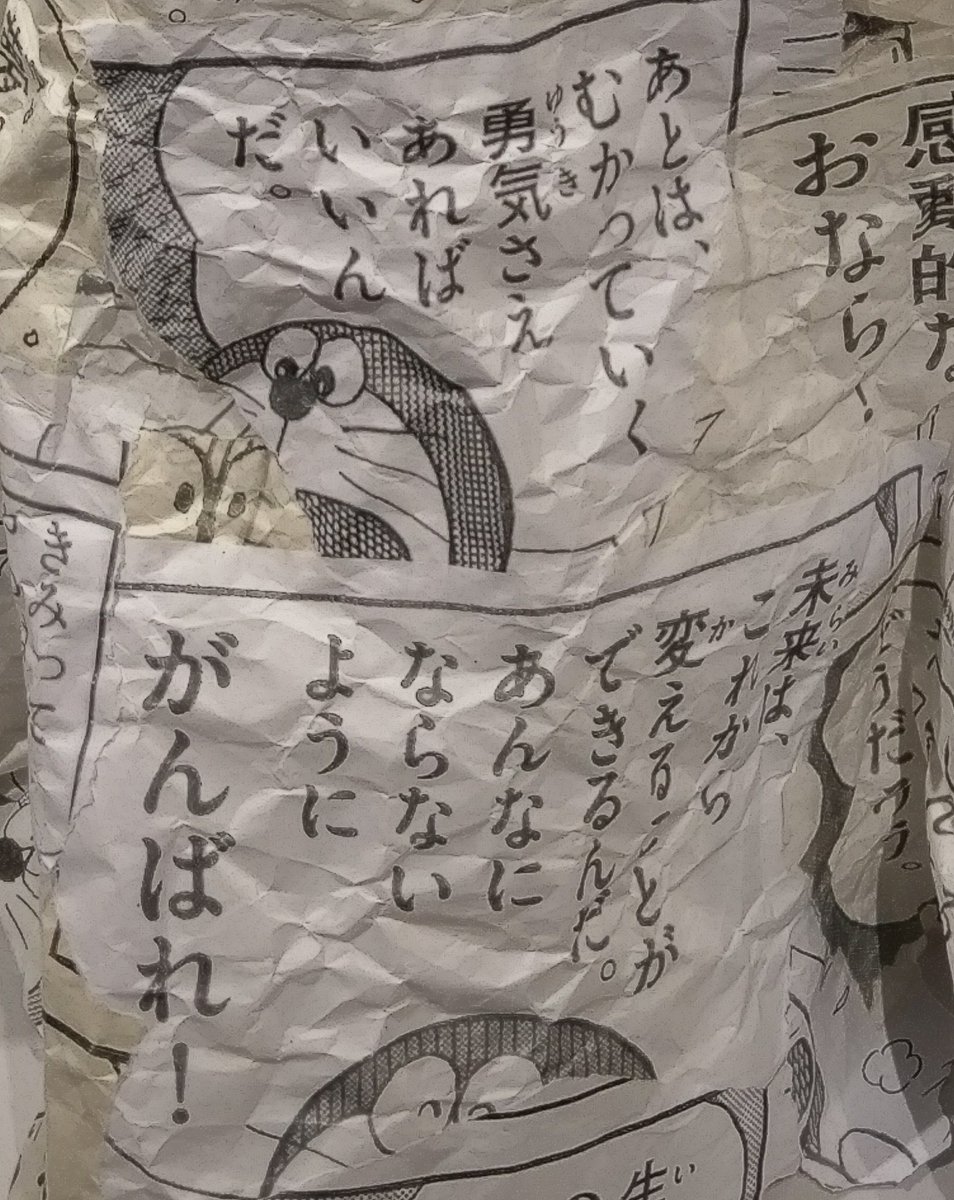 感動的だ。
おなら！
あとは、
むかっていく
勇気さえ
ゆうき
あれば
いいん
だ。
どうだウラ。
未来は、
みらい
これから
変えることが
か
できるんだ。
あんなに
ならない
ように
がんばれ！
きみって
生
い